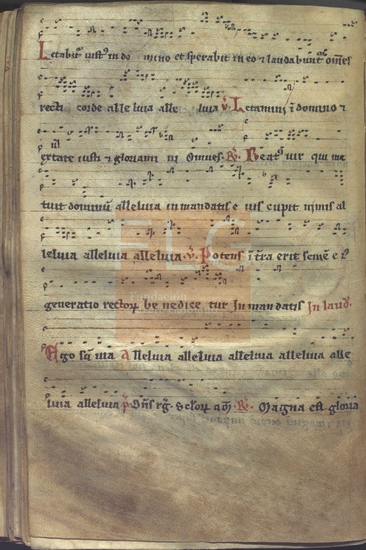 Letabit᷒ iust᷒ in do mino et sperabit in eo ⁊ laudabunt᷒ om̄es
recti corde alleluia alle luia ℣. Letamini ī domino ⁊
exultate iusti ⁊ gloriam in Omnes. ℟. Beat᷒ uir qui me
tuit dominū alleluia in mandatis e ius cupit nimis al
leluia alleluia alleluia. ℣. Potens ī tra erit semē e i᷒
generatio rectoꝝ be nedice tur In mandatis In laud.
Ego sū uia Alleluia alleluia alleluia alleluia alle
luia alleluia p̄. Dn̄s rḡ. ℟. Magna est gloria
FLG